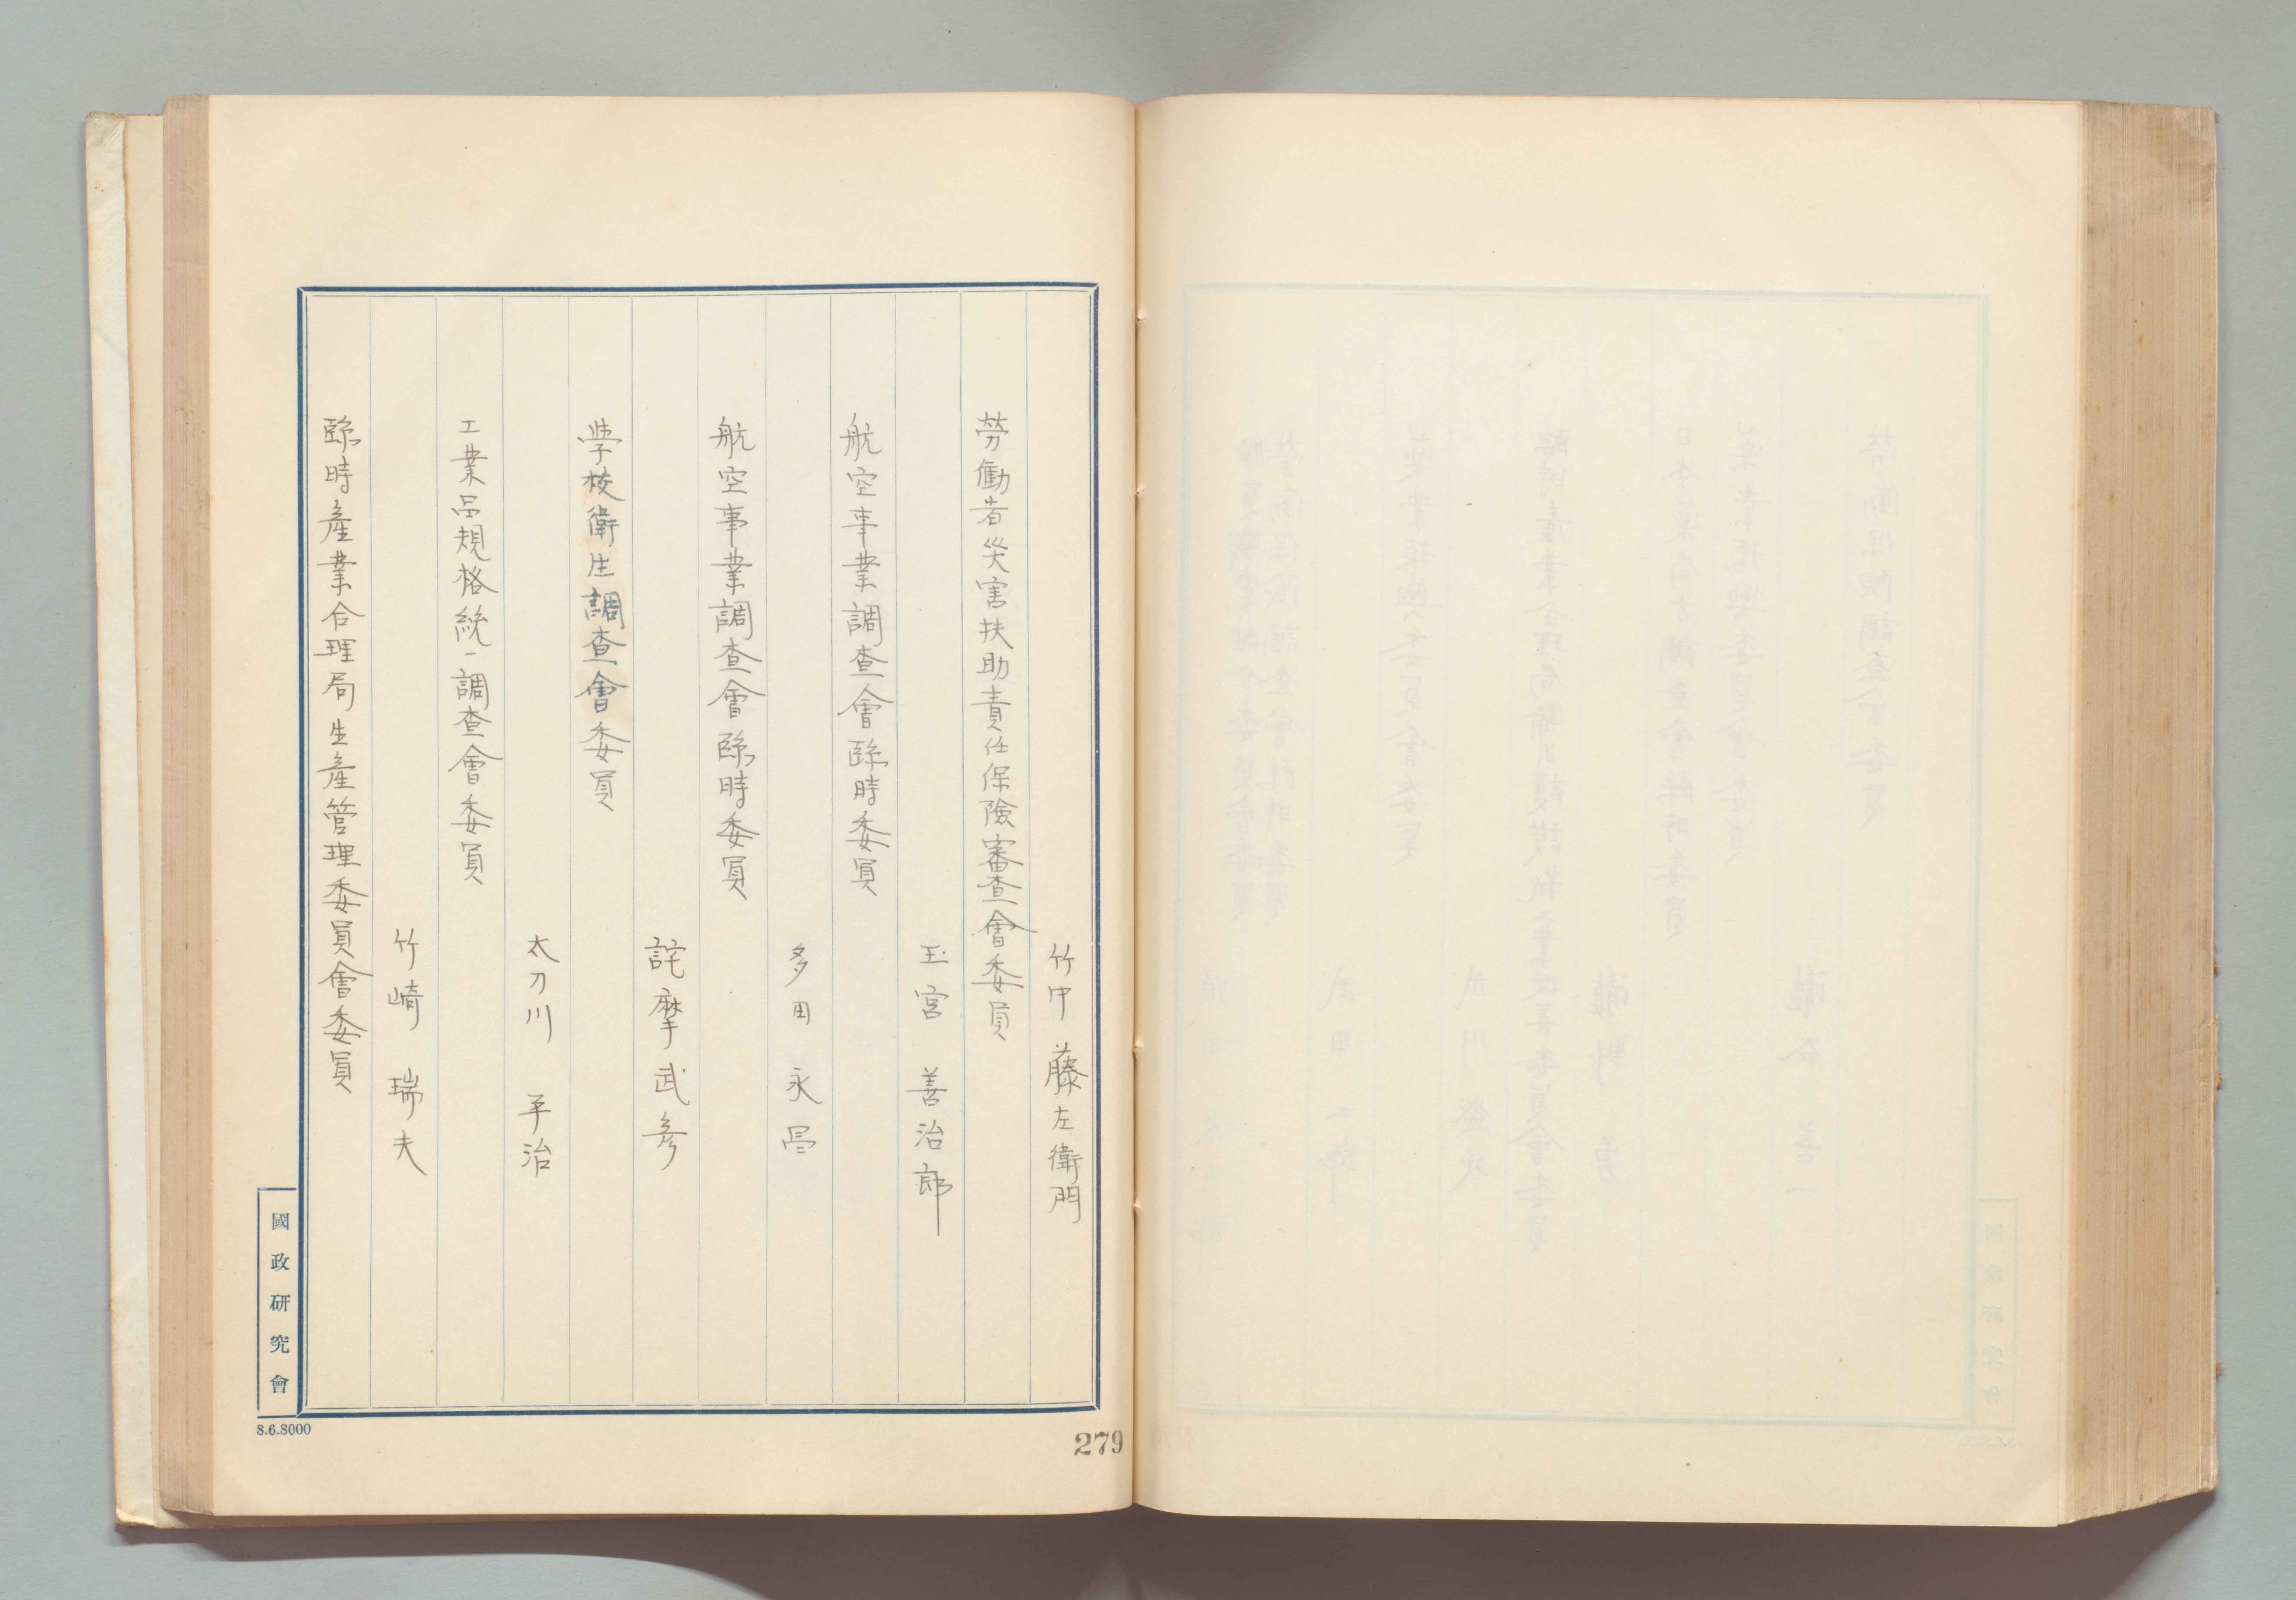 竹中藤左衛門
勞働者災害扶助責任保險審查會委員
玉宮善治郎
航空事業調查會臨時委員
多田永昌
航空事業調查會臨時委員
詫摩武彦
学校衛生調查會委員
太刀川平治
工業品規格統一調查會委員
竹崎瑞夫
臨時產業合理局生產管理委員會委員
國政研究會
8.6.8000
279